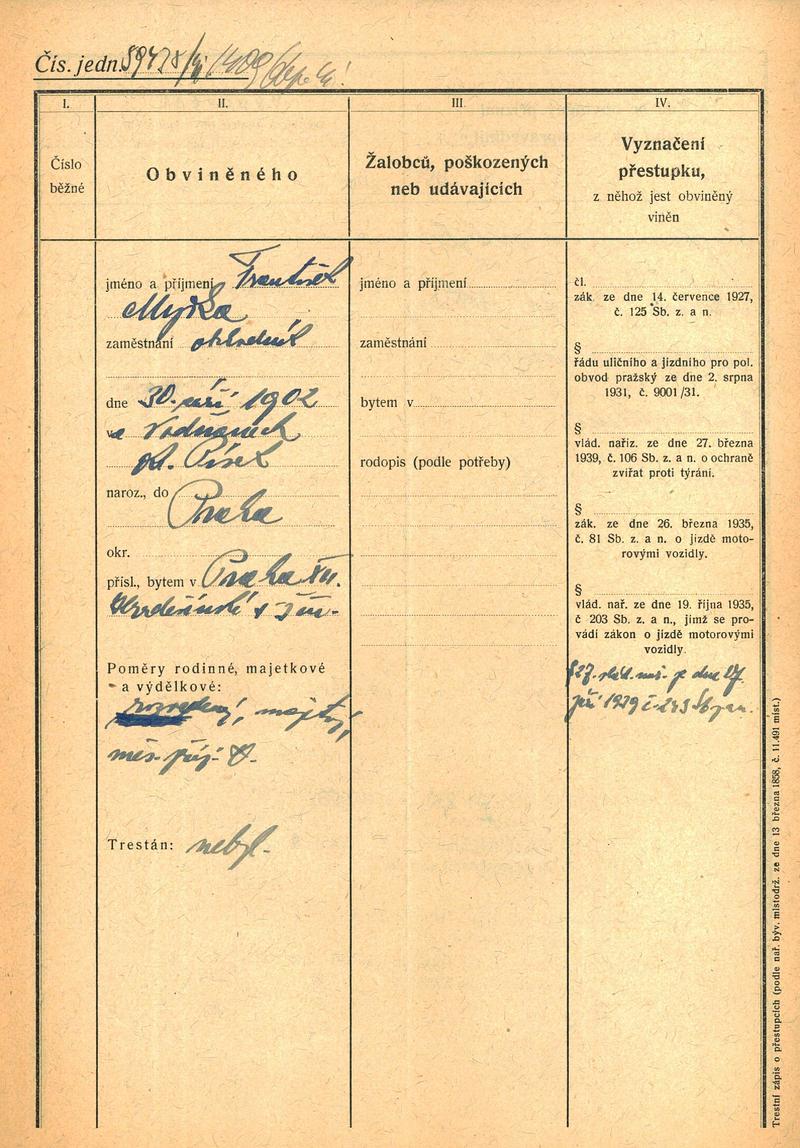 Čís. jedn.
I.
Číslo
běžné
II.
Obviněného
jméno a příjmení František
Myška
zaměstnání
dne 30. září 1902
ve Vodňanech
okr. Písek
naroz., do
Praha
okr.
přísl., bytem v Praha XII.
Poměry rodinné, majetkové
a výdělkové:
měs. příj.
Trestán: nebyl.
III.
Žalobců, poškozených
neb udávajících
jméno a příjmení
zaměstnání
bytem v
rodopis (podle potřeby)
IV.
Vyznačení
přestupku,
z něhož jest obviněný
viněn
čl.
zák ze dne 14. července 1927,
č. 125 Sb. z. a n.
§
řádu uličního a jízdního pro pol.
obvod pražský ze dne 2. srpna
1931, č. 9001/31.
§
vlád. naříz. ze dne 27. března
1939, č. 106 Sb. z. a n. o ochraně
zvířat proti týrání.
§
zák. ze dne 26. března 1935,
č. 81 Sb. z. a n. o jízdě moto-
rovými vozidly.
§
vlád. nař. ze dne 19. října 1935,
č 203 Sb. z. a n., jímž se pro-
vádí zákon o jízdě motorovými
vozidly.
Trestní zápis o přestupcích (podle nař. býv. místodrž. ze dne 13 března 1858, č. 11.491 míst.)